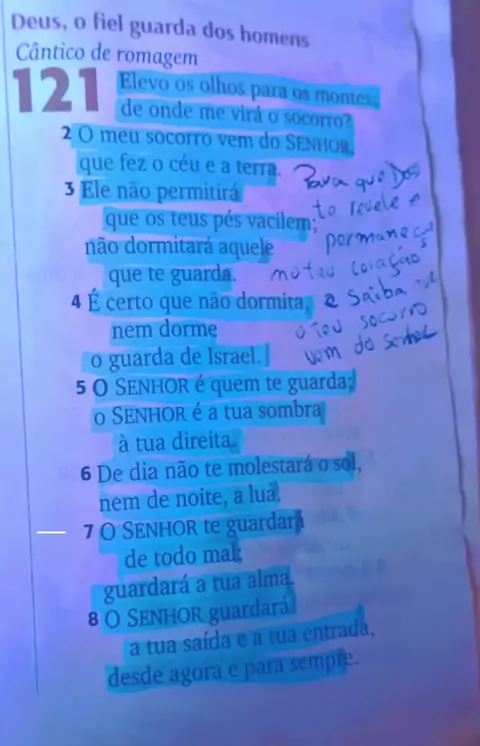 Deus, o fiel guarda dos homens
Cântico de romagem
121 Elevo os olhos para os montes:
de onde me virá o socorro?
2 O meu socorro vem do SENHOR,
que fez o céu e a terra.
3 Ele não permitirá
que os teus pés vacilem;
não dormitará aquele
que te guarda.
4 É certo que não dormita,
nem dorme
o guarda de Israel.
5 O SENHOR é quem te guarda;
o SENHOR é a tua sombra
à tua direita.
6 De dia não te molestará o sol,
nem de noite, a lua.
7 O SENHOR te guardará
de todo mal;
guardará a tua alma.
8 O SENHOR guardará
a tua saída e a tua entrada,
desde agora e para sempre.
Para que Deus
te revele e
permaneça
no teu coração
e saiba que
o teu socorro
vem do Senhor